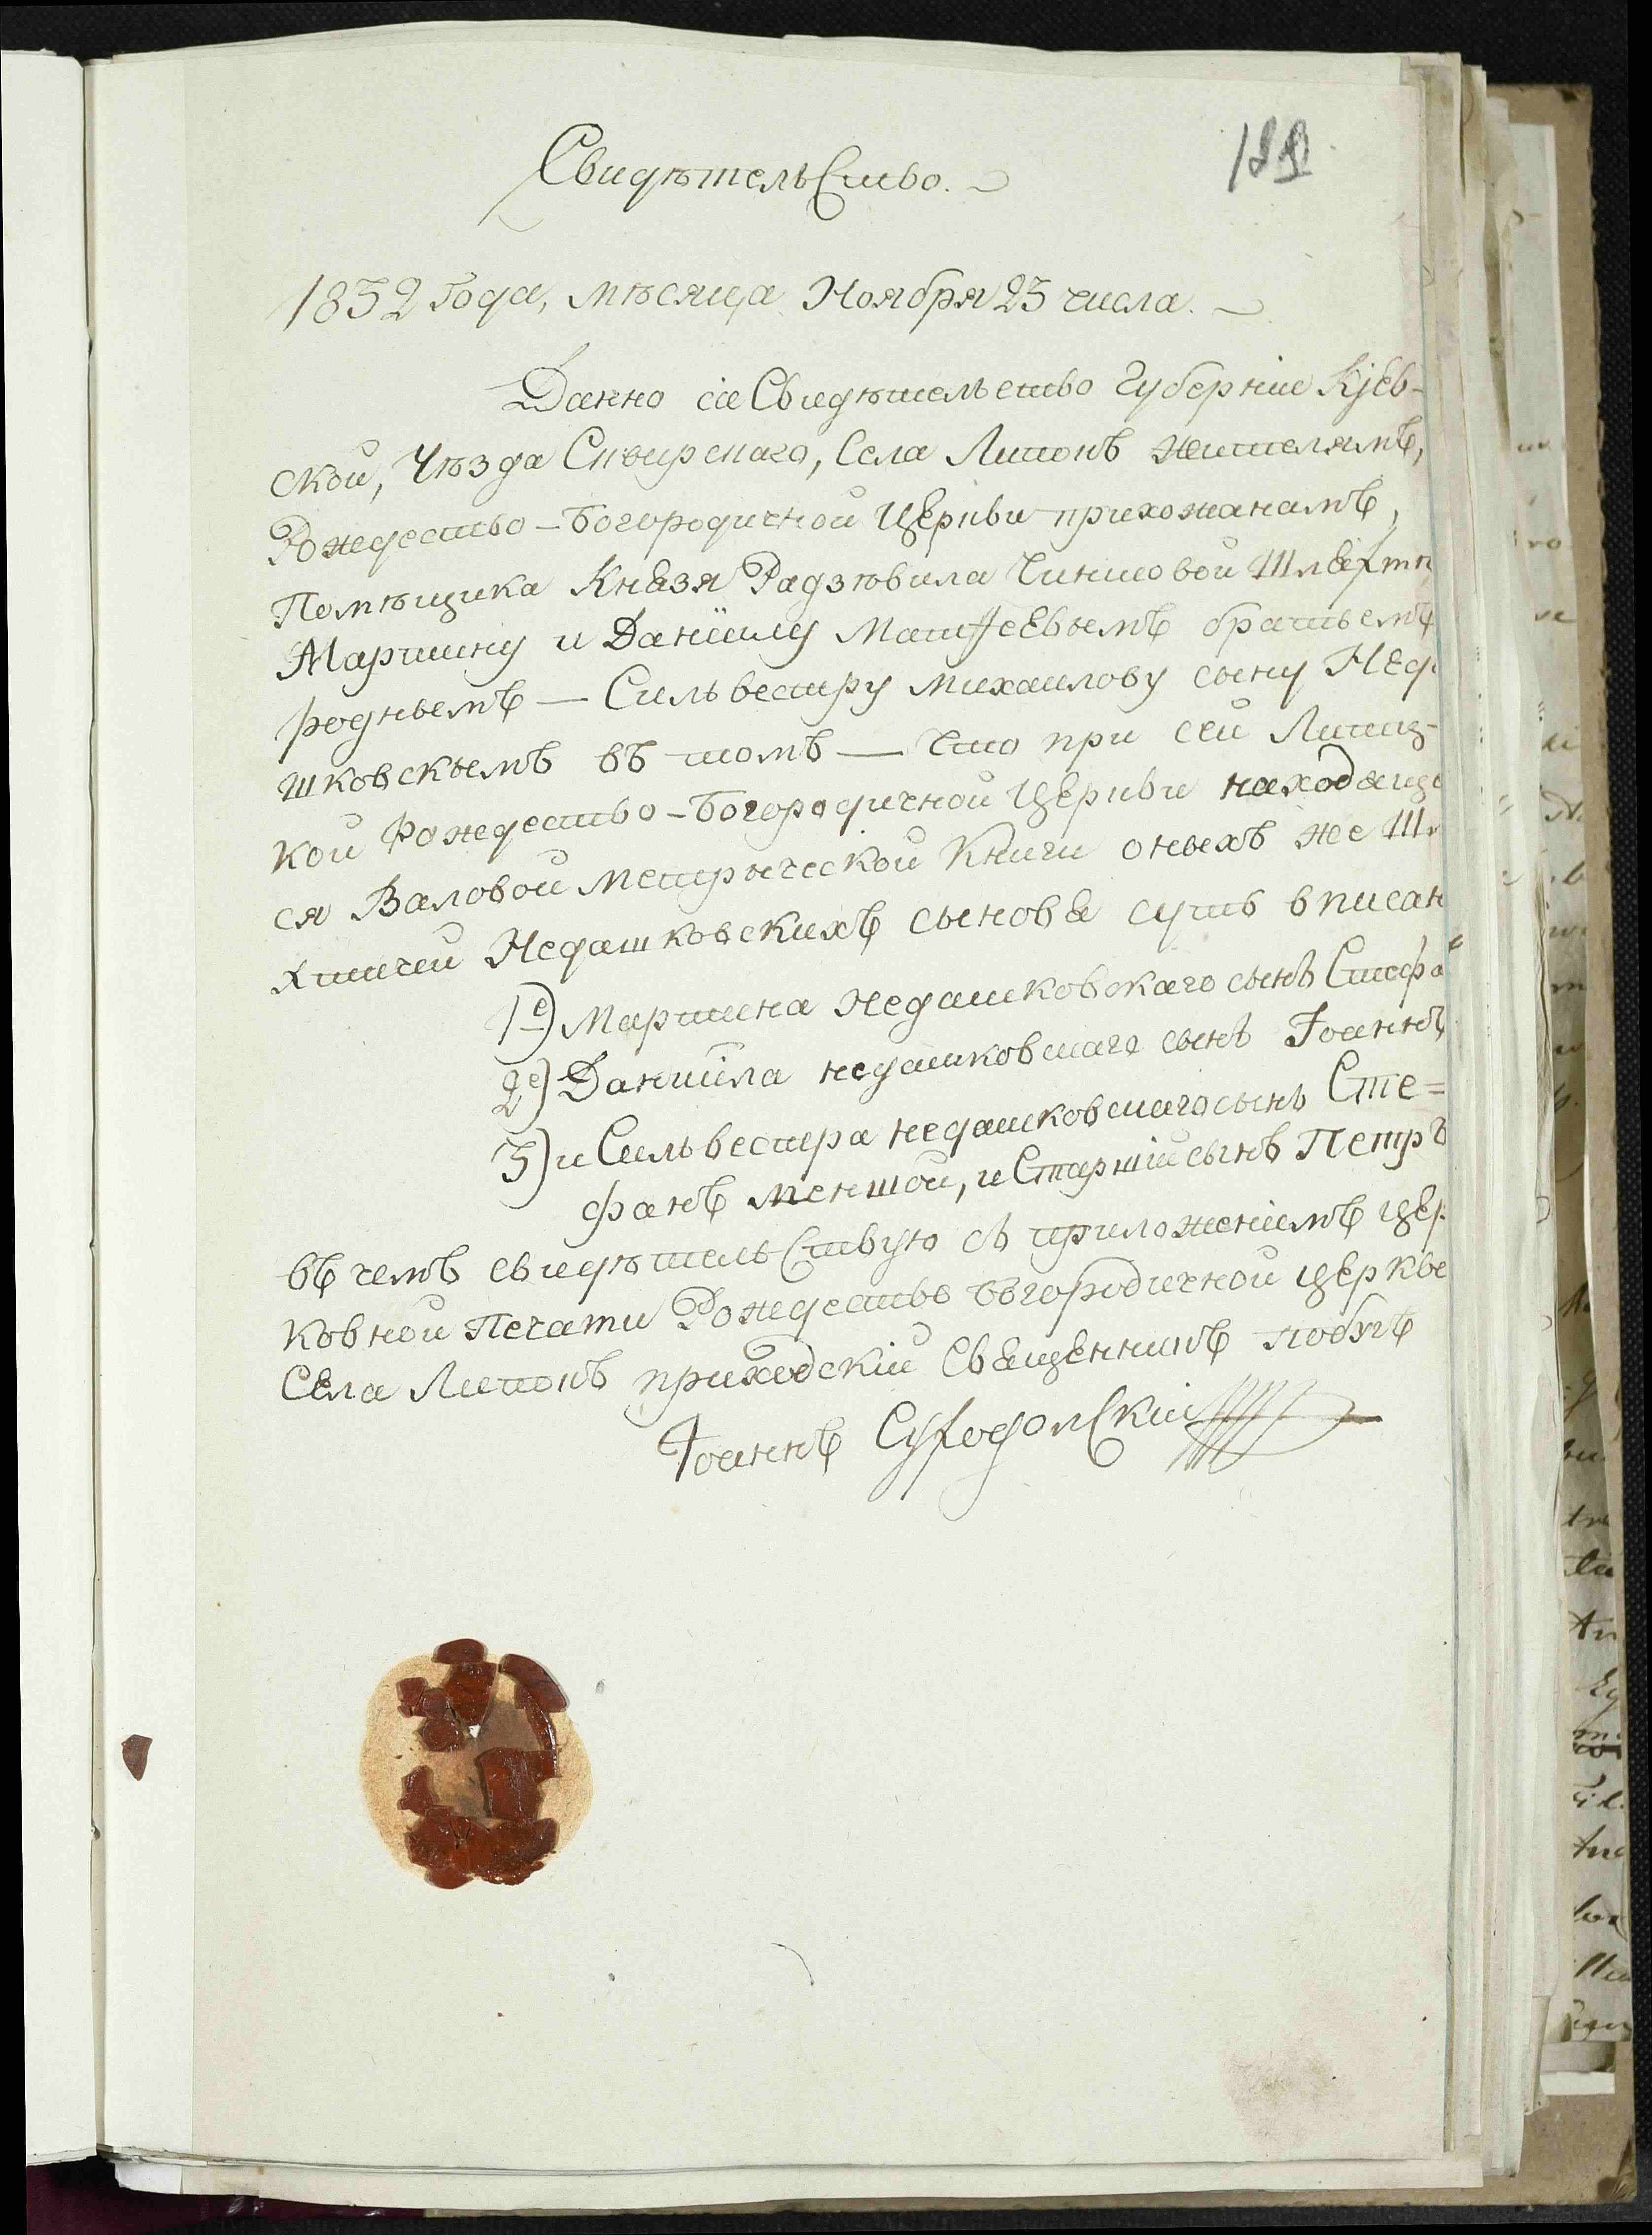 Свидѣтельство.
1832 Года, мѣсяца Ноября 23 числа.
Данно сіе Свидѣтельство Губерніи Кіев-
ской, Уѣзда Сквирскаго, Села Липокъ жителямъ,
Рождество-Богородичной Церкви прихожанамъ,
Помѣщика Князя Радзѣвила Чиншовой Шляхт
Мартину и Даніилу Матфеевымъ братьемъ
роднымъ — Сильвестру Михаилову сыну Нед
шковскымъ въ томъ — Что при сей Липец-
кой Рождество-Богородичной Церкви находящ
ся Валовой Метрыческой Книги оныхъ же Шл
хтичей Недашковскихъ сыновья суть вписан
1е) Мартина Недашковскаго сынъ Стефа
2е) Даніила недашковскаго сынъ Іоаннъ
3) и Сильвестра недашковскаго сынъ Сте=
фанъ меншой, и Старшій сынъ Петръ
въ чемъ свидѣтельствую съ приложеніемъ Цер
ковной Печати Рождество Богородичной Церкве
Села Липокъ приходскій Священникъ
Іоаннъ Суходолскій